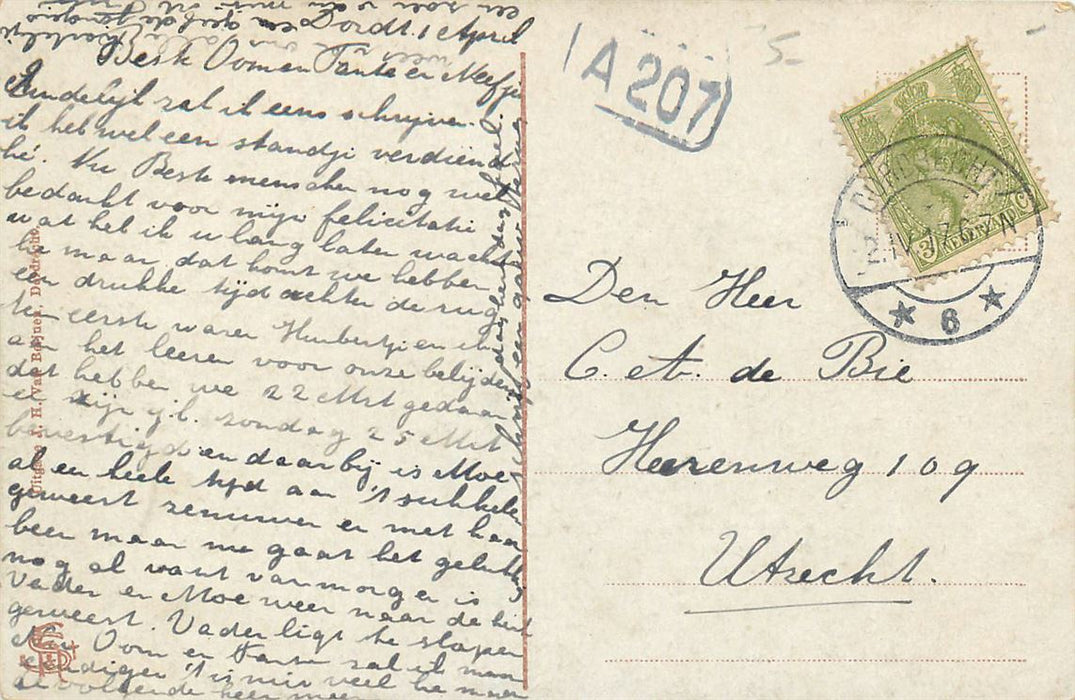 Dordt. 1 April
Beste Oom en Tante en Neefje
Eindelijk zal ik eens schrijven.
ik heb wel een standji verdiend
hé. Nu Beste menschen nog wel
bedankt voor mijn felicitatie
wat heb ik u lang laten wachten
he maar dat komt we hebben
een drukke tijd achter de rug
ten eerste waren Huibertje en ik
aan het leeren voor onze belijden
dat hebben we 22 Mrt gedaan
en zijn j.l. zondag 25 Mrt
bevestigd en daar bij is Moe
al en heele tijd aan 't sukkelen
geweest zenuwen en met haar
been maar nu gaat het gelukkig
nog al want van morgen is
Vader en Moe weer naar de kerk
geweest. Vader ligt te slapen
Nu Oom en Tante zal ik maar
eindigen 't is niet veel he maar
de volgende keer meer
A 207
5-
DORDRECHT
2.IV.17.6-7N
6
3 NEDERLAND C
Den Heer
C. A. de Bie
Heerenweg 109
Utrecht.
Uitgave J. H. Van Boxmeer, Dordrecht.